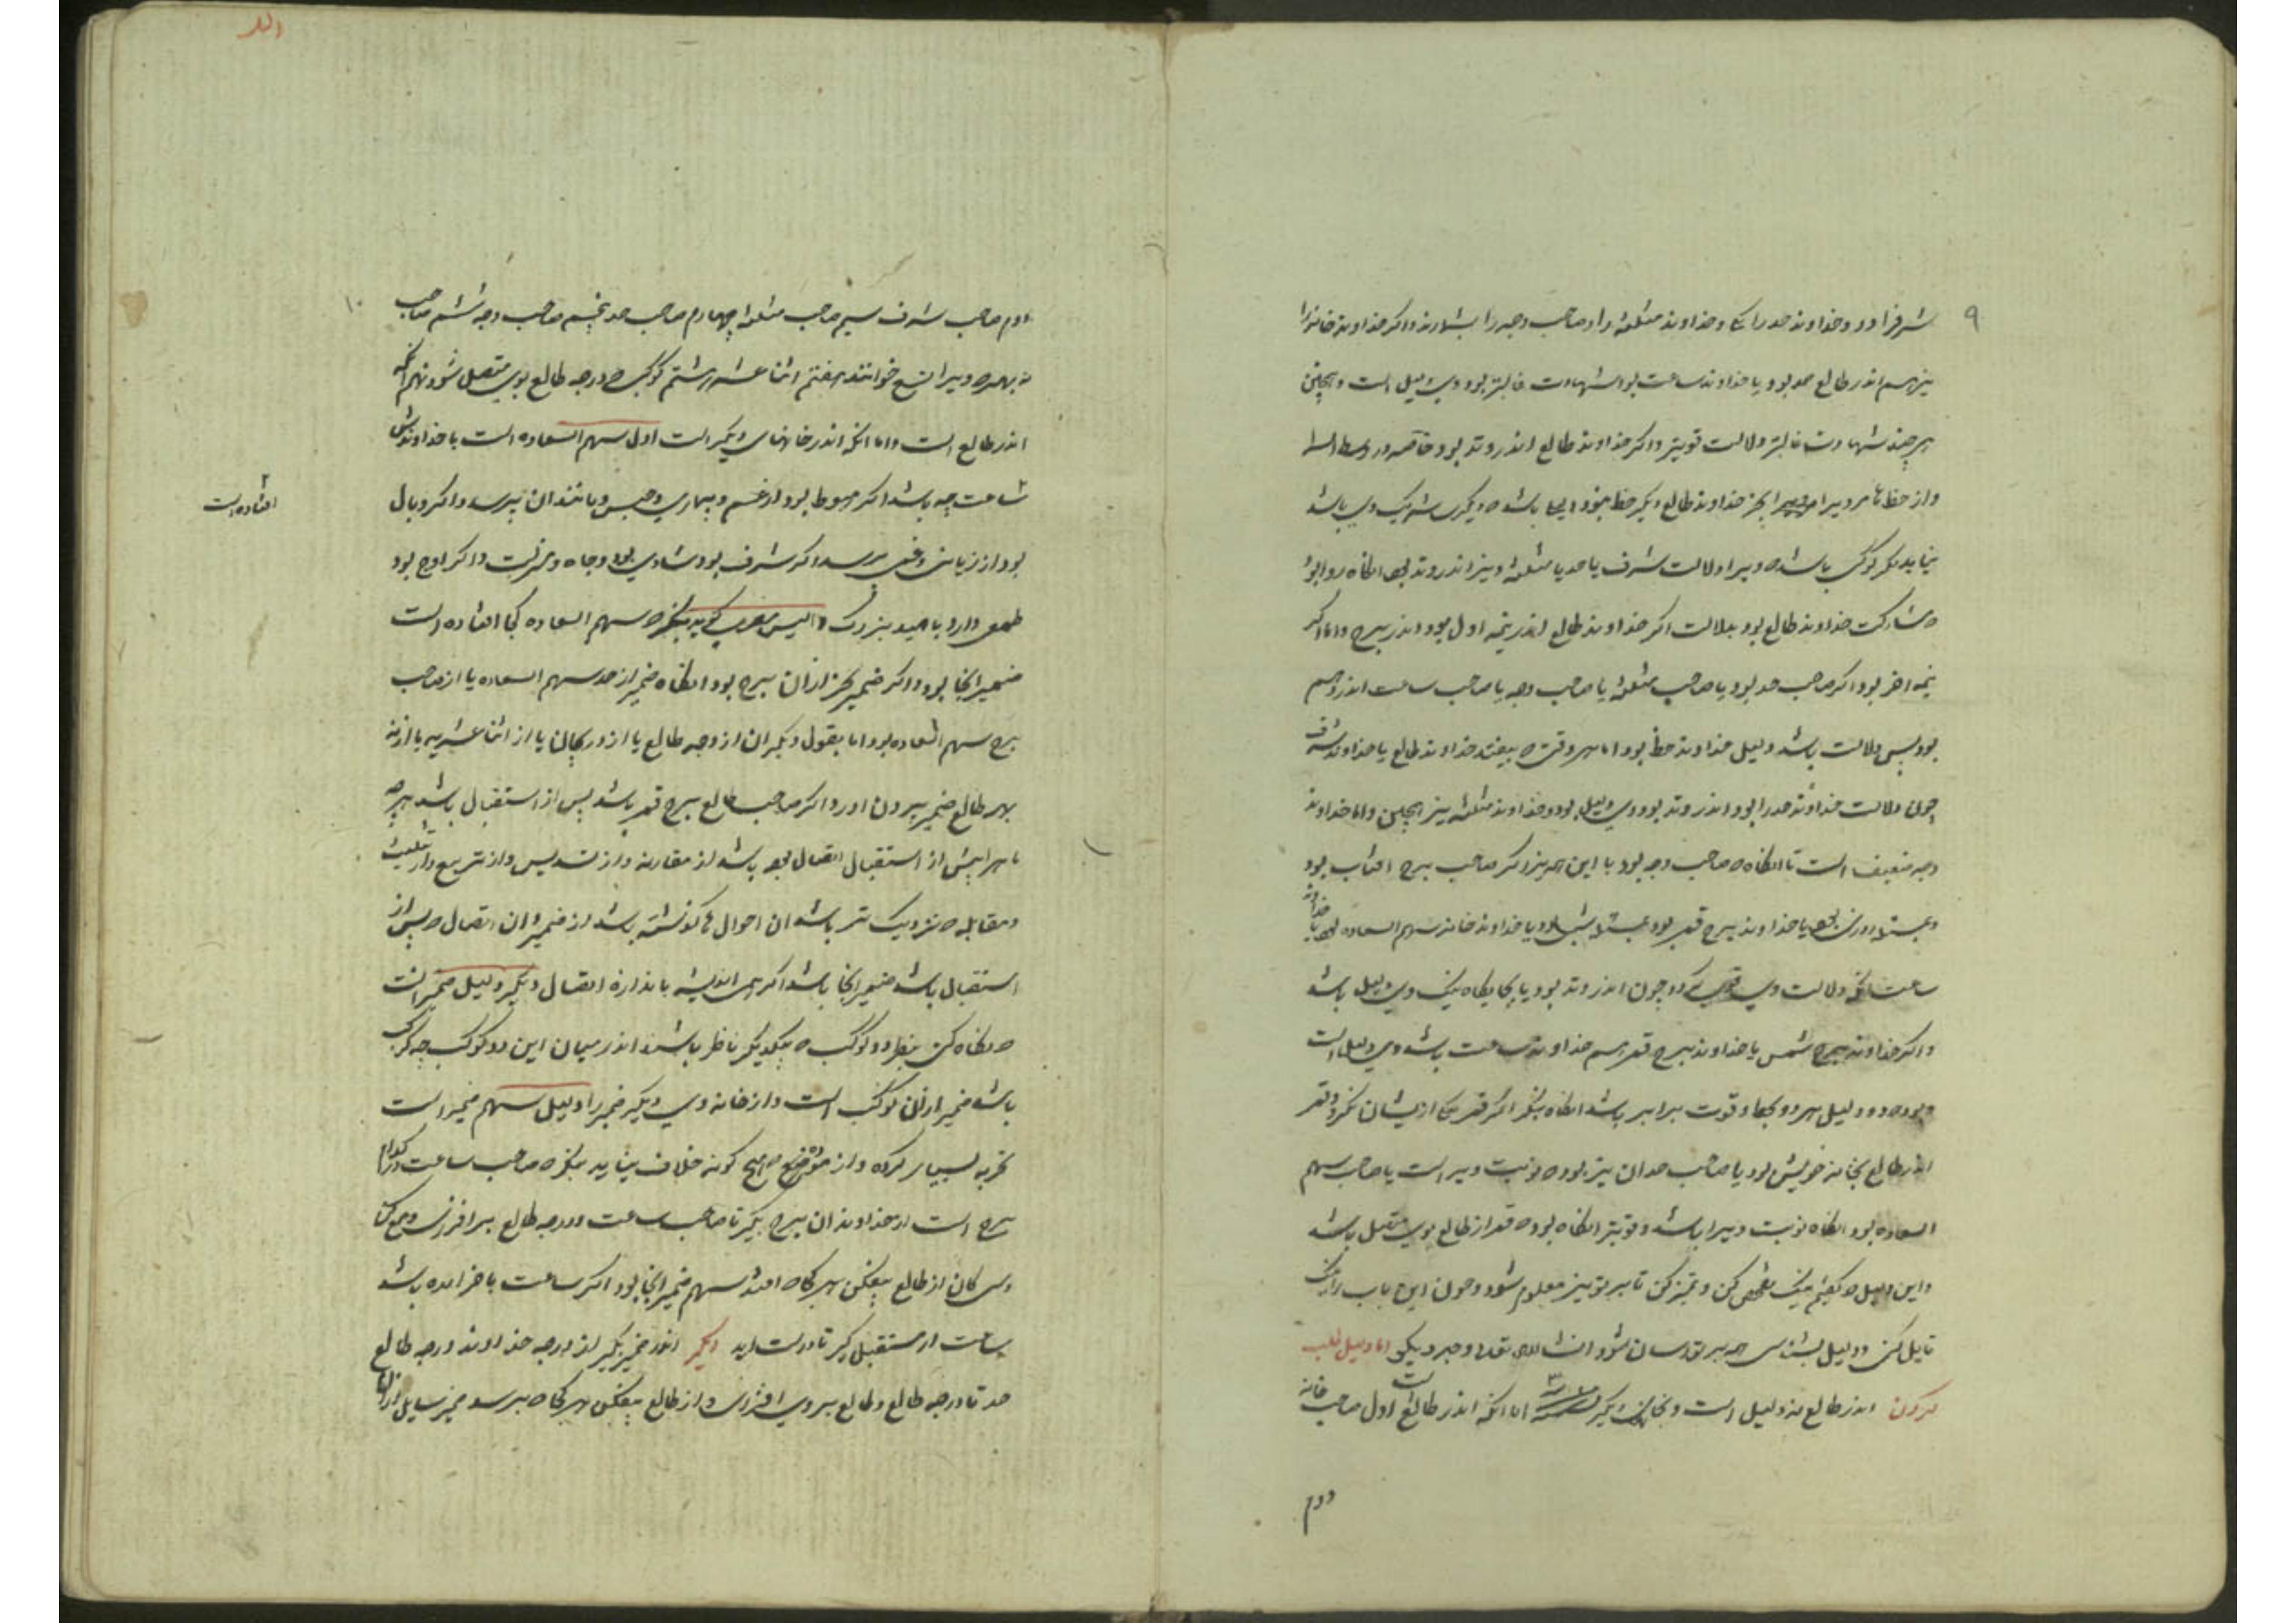 ۹
شرفرا دو و خداوند حد را یکی و خداوند مثلثه را و صاحب وجه را بشمارند و اگر خداوند خانه را
نیز سهم اندر طالع بود و یا خداوند ساعت بود شهادت غالبتر بود وی دلیل است و همچنین
هر چند شهادت غالبتر دلالت قویتر و اگر خداوند طالع اندر وتد بود خاصه در وسط السما
و از حظها مر ویرا بجز خداوند طالع دیگر حظ نبود باشد که دیگری شریک وی باشد
نیاید مگر کوکبی باشد که ویرا دلالت شرف یا حد یا مثلثه و نیز اندر وتد بود آنگاه روا بود
که مشارکت خداوند طالع بود بدلالت اگر خداوند طالع اندر نیمه اول بود اندر برج و اما اگر
نیمه آخر بود اگر صاحب حد بود یا صاحب مثلثه یا صاحب وجه یا صاحب ساعت اندر وسم
بود پس دلالت باشد دلیل خداوند حظ بود اما هر وقتی که بیفتد خداوند طالع یا خداوند شرف
چون دلالت خداوند حد را بود و اندر وتد بود وی دلیل بود و خداوند مثلثه نیز همچنین و اما خداوند
وجه ضعیف است تا آنگاه که صاحب وجه بود با این همه نیز و گر صاحب برج آفتاب بود
یا خداوند برج قمر بود یا خداوند خانه سهم السعاده یا خداوند
ساعت آنگه دلالت وی قوی گردد چون اندر وتد بود یا بجایگاه نیک وی دلیل باشد
و اگر خداوند برج شمس یا خداوند برج قمر هم خداوند ساعت باشد وی دلیل است
و بود که دو دلیل هر دو بجا و قوت برابر باشد آنگاه بنگر اگر قمر یکی از ایشان نگرد و قمر
اندر طالع بخانه خویش بود یا صاحب حد آن نیز بود که نوبت ویرا است یا صاحب سهم
السعاده بود آنگاه نوبت ویرا باشد و قویتر آنگاه بود که قمر از طالع بوی متصل باشد
و این دلیل که گفتیم نیک تفحص کن و تمیز کن تا بر تو نیز معلوم شود و چون این باب را نیک
تأمل کنی و دلیل بشناسی همه بر تو آسان شود انشاءالله تعالی وجه دیگر اما دلیل طلب
کردن اندر طالع نه دلیل است و بجای دیگر اما آنکه اندر طالع است اول صاحب خانه
دوم
۱۰
دوم صاحب شرف سیم صاحب مثلثه چهارم صاحب حد پنجم صاحب وجه ششم صاحب
نه بهره که ویرا تسع خوانند هفتم اثنا عشریه هشتم کوکبی که درجه طالع بوی متصل شود نهم آنکه
اندر طالع است و اما آنکه اندر خانهای دیگر است اول سهم السعاده است با خداوندش
تا عاقبت چه باشد اگر هبوط بود از غم و بیماری و حبس و مانند آن پرسد و اگر وبال
افتاده است
بود از زیانی و غمی پرسد اگر شرف بود شادی بود و جاه و منزلت و اگر اوج بود
طمعی دارد یا امید بزرگ والیس مصری گوید بنگر که سهم السعاده کجا افتاده است
ضمیر آنجا بود و اگر ضمیر بجز از آن برج بود آنگاه ضمیر از حد سهم السعاده یا از صاحب
برج سهم السعاده بود اما بقول دیگران از وجه طالع یا از دریجان یا از اثنا عشریه یا از نه
بهر طالع ضمیر بیرون آورد اگر صاحب طالع برج قمر باشد پس از استقبال باشد هر چه
ماه را پیش از استقبال اتصال بود باشد از مقارنه و از تسدیس و از تربیع و از تثلیث
و مقابله که نزدیک تر باشد آن احوال که گذشته باشد از ضمیر و آن اتصال که پس از
استقبال باشد ضمیر آنجا باشد اگر همی اندیشه باندازه اتصال دیگر دلیل ضمیر آنست
که نگاه کنی بنظر دو کوکب که بیکدیگر ناظر باشند اندر میان این دو کوکب چه کوکب
باشد ضمیر از آن کوکب است و از خانه وی دیگر ضمیر را دلیل سهم ضمیر است
تجربه بسیار کرده و از موضع هیچ گونه خلاف نیاید بنگر که صاحب ساعت در کدام
برج است از خداوند آن برج بگیر تا صاحب ساعت و درجه طالع بر افزای و سی
سی گان از طالع بیفکن هر کجا که افتد سهم ضمیر آنجا بود اگر ساعت باخر آمده باشد
ساعت از مستقبل گیر تا درست آید دیگر اندر ضمیر بگیر از درجه خداوند درجه طالع
حد تا درجه طالع و طالع بر وی افزای و از طالع بیفکن هر کجا که برسد ضمیر سایل از آنجا